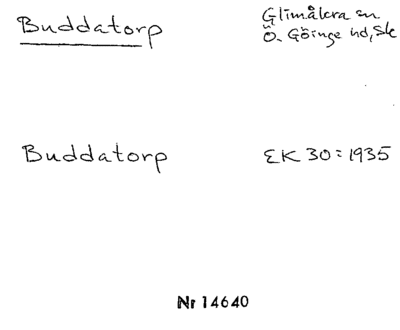 Buddatorp
Glimåkra sn
Ö. Göinge hd, Sk
Buddatorp
EK 30:1935
Nr 14640